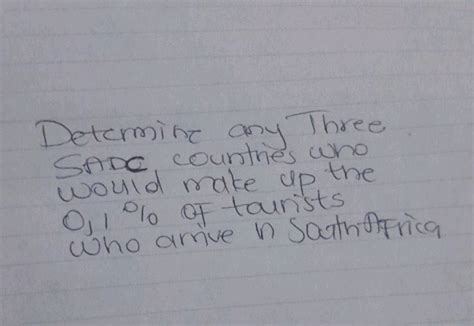 Determine any Three
SADC countries who
would make up the
0,1 % of tourists
who arrive in South Africa